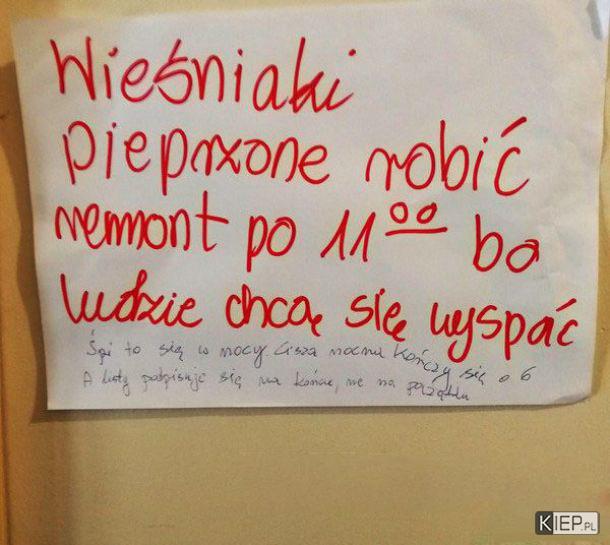 Wieśniaki
pieprzone robić
remont po 11⁰⁰ bo
ludzie chcą się wyspać
Śpi to się w nocy. Cisza nocna kończy się o 6
A listy podpisuje się na końcu, nie na początku
KIEP.PL